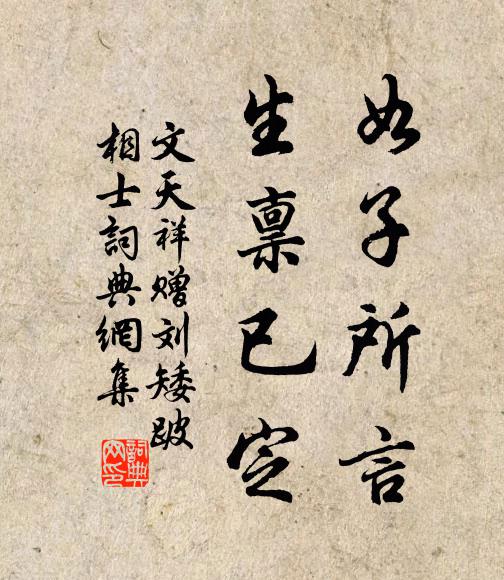 如子所言
生禀已定
文天祥赠刘矮跛
相士詞典網集
詞典
网印